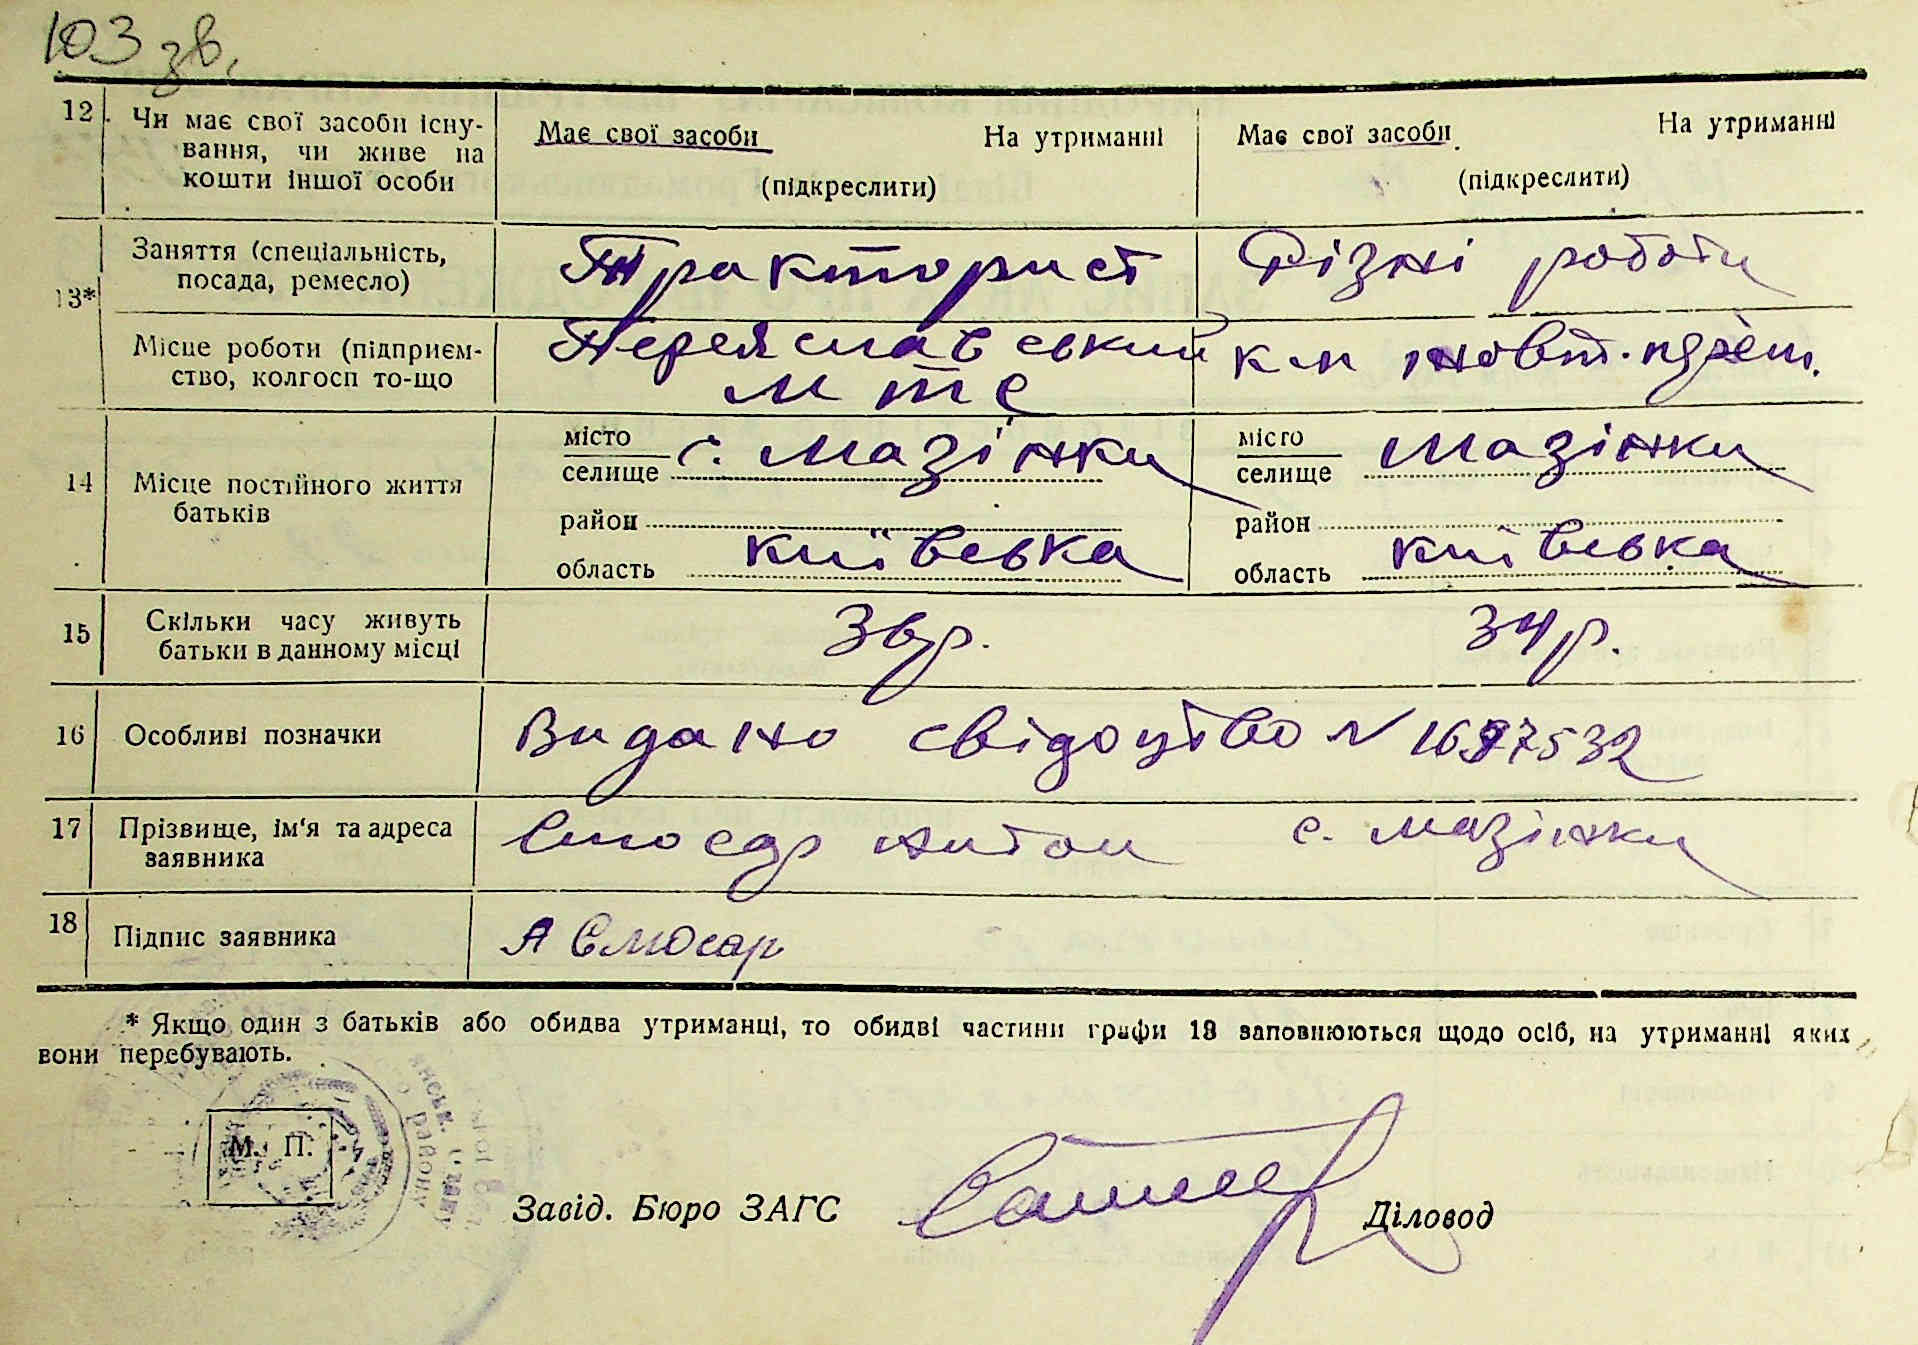 103 зв.
12. Чи має свої засоби існу-
вання, чи живе на
кошти іншої особи
Має свої засоби На утриманні
(підкреслити)
Має свої засоби На утриманні
(підкреслити)
13*
Заняття (спеціальність,
посада, ремесло)
Тракторист
Різні роботи
Місце роботи (підприєм-
ство, колгосп то-що
Переяславський
мтс
к-п жовт.
14 Місце постійного життя
батьків
місто
селище с. Мазінки
район
область київська
місто
селище Мазінки
район
область київська
15 Скільки часу живуть
батьки в данному місці
36 р.
34 р.
16 Особливі позначки
Видано свідоцтво N 1697532
17 Прізвище, ім'я та адреса
заявника
Слюсар Антон с. Мазінки
18 Підпис заявника
А Слюсар
* Якщо один з батьків або обидва утриманці, то обидві частини графи 13 заповнюються щодо осіб, на утриманні яких
вони перебувають.
М. П.
району
Завід. Бюро ЗАГС
Діловод